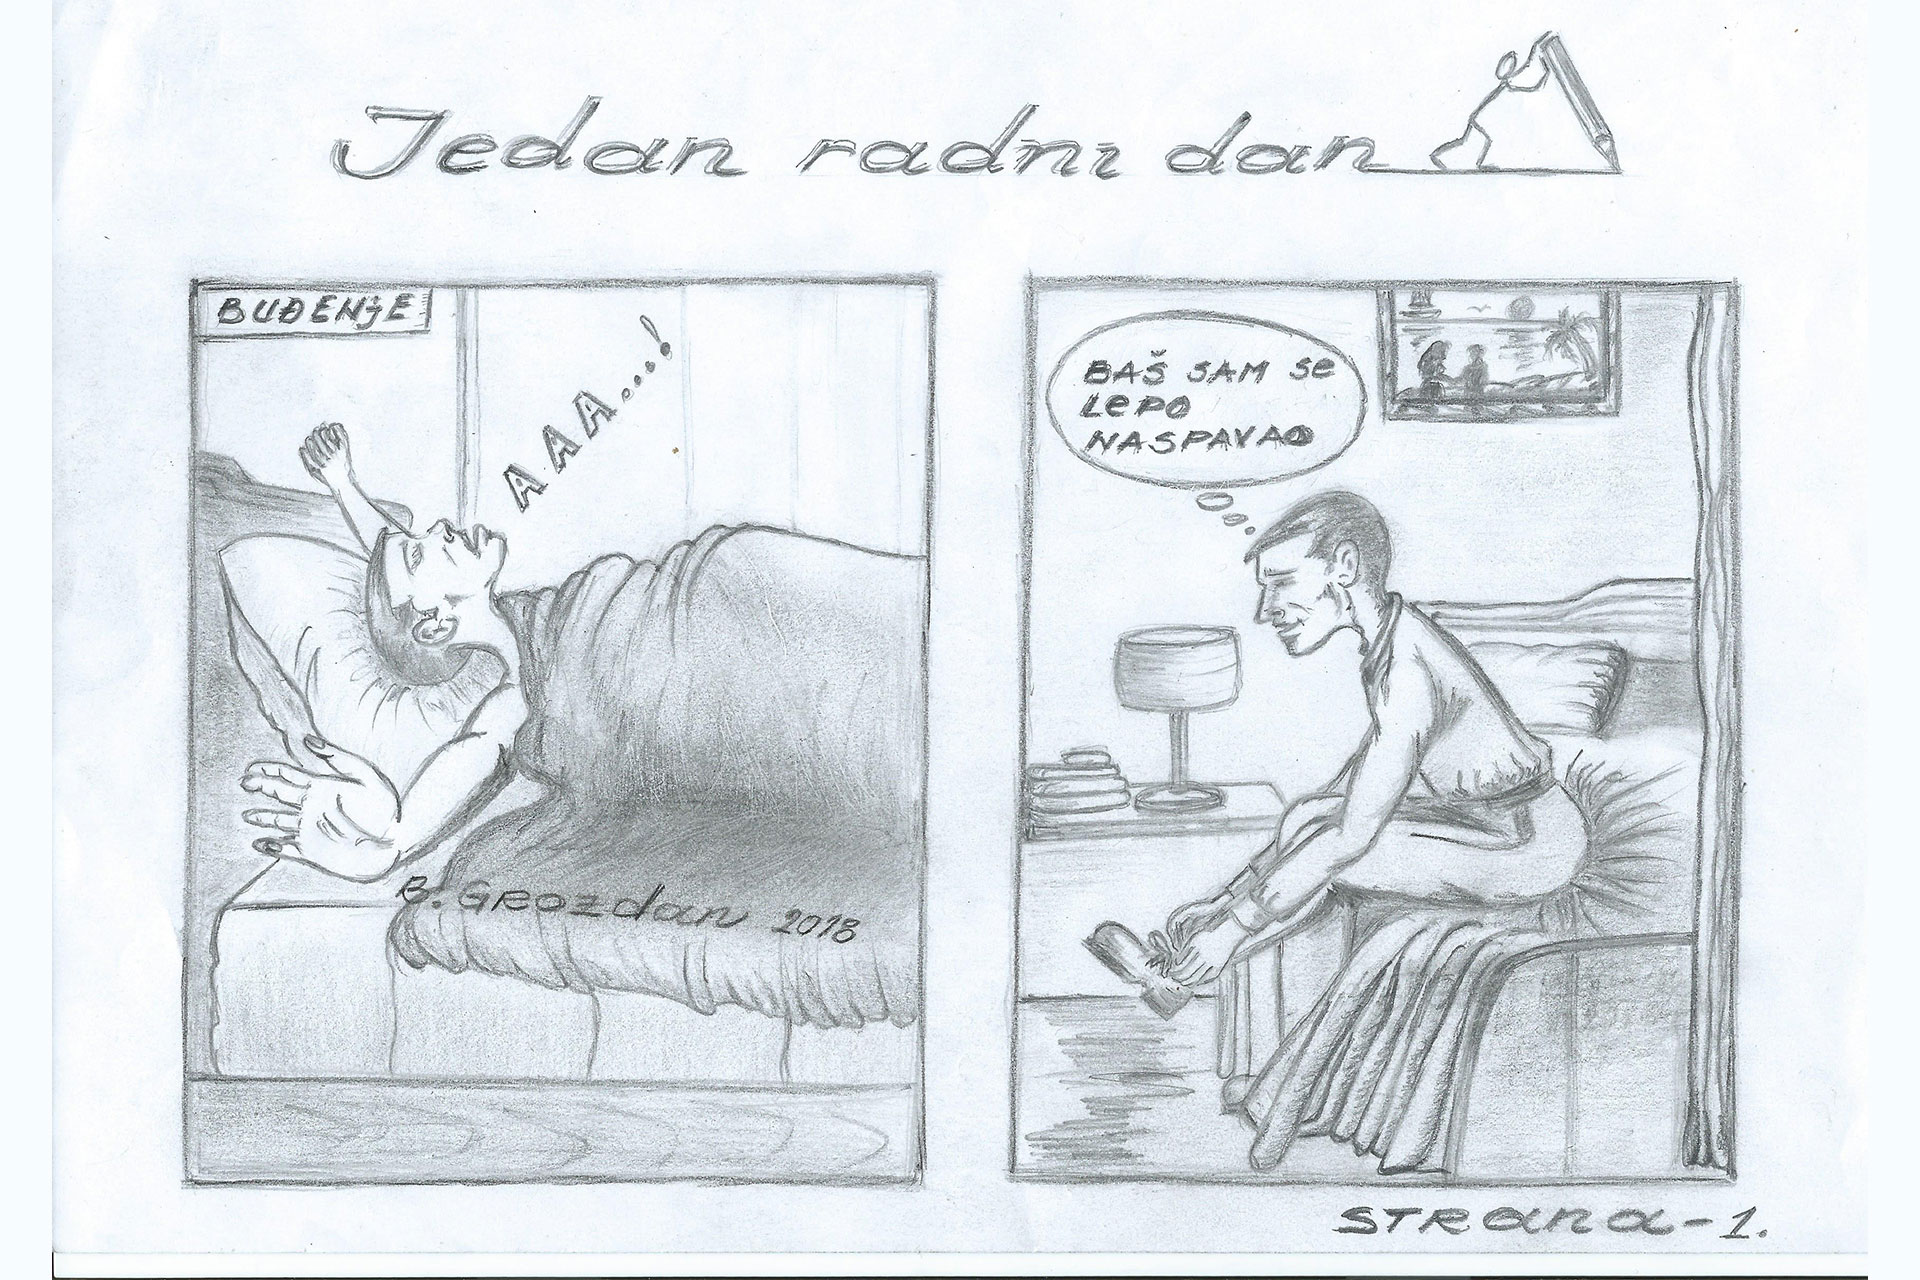 Jedan radni dan
BUĐENJE
AAA....!
B. GROZdan 2018
BAŠ SAM Se
LePO
NASPAVAO
STRana-1.